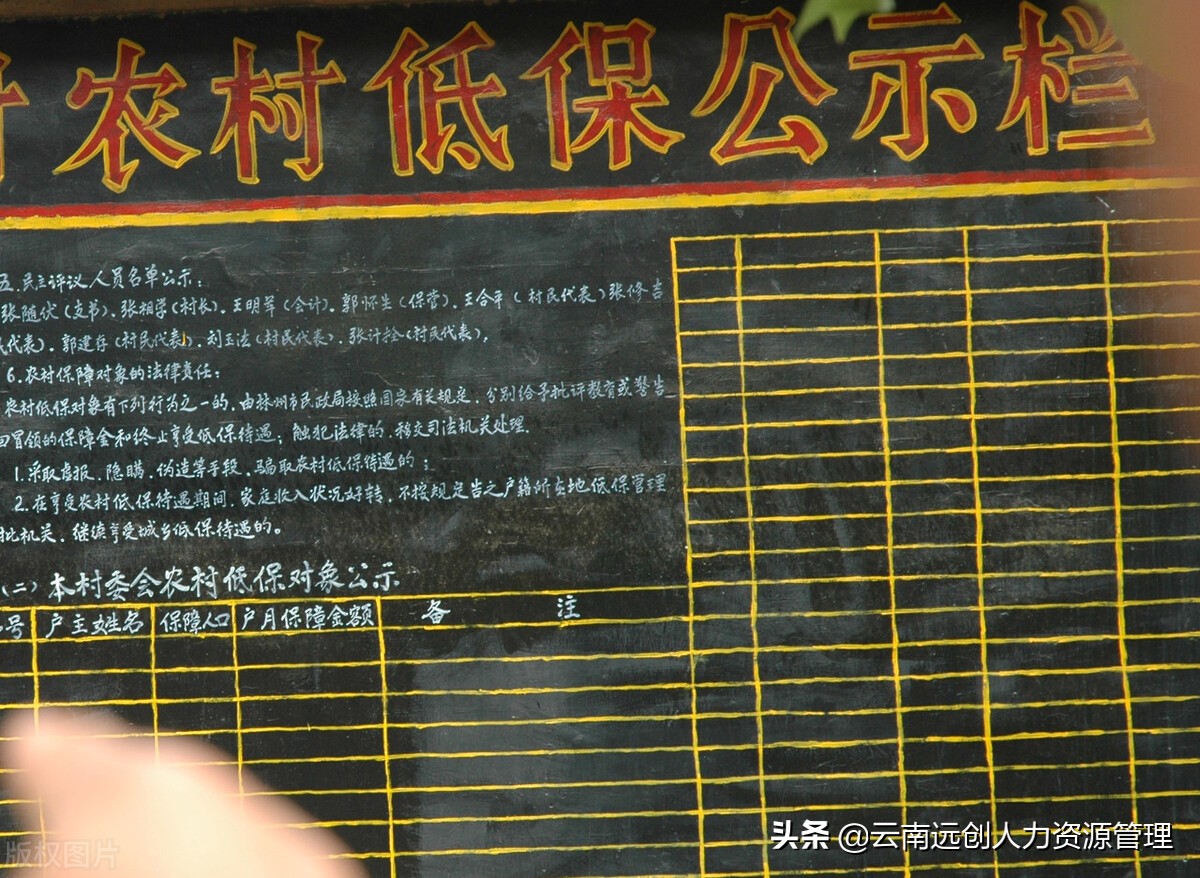 农村低保公示栏
五.民主评议人员名单公示:
张随伏(支书).张相学(村长).王明军(会计).郭怀生(保管).王合平(村民代表)张修吉
代表).郭建存(村民代表).刘玉法(村民代表).张计拴(村民代表),
6.农村保障对象的法律责任:
农村低保对象有下列行为之一的.由林州市民政局按照国家有关规定.分别给予批评教育或警告
回冒领的保障金和终止享受低保待遇;触犯法律的.移交司法机关处理.
1.采取虚报.隐瞒.伪造等手段.骗取农村低保待遇的;
2.在享受农村低保待遇期间.家庭收入状况好转.不按规定告之户籍所在地低保管理
批机关.继续享受城乡低保待遇的。
(二)本村委会农村低保对象公示
号 户主姓名 保障人口 户月保障金额 备 注
头条 @云南远创人力资源管理
版权图片